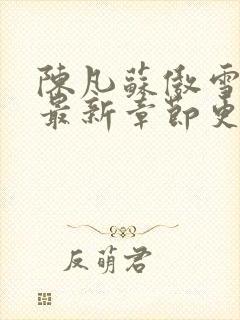 陳凡蘇傲雪
最新章節更
反萌君